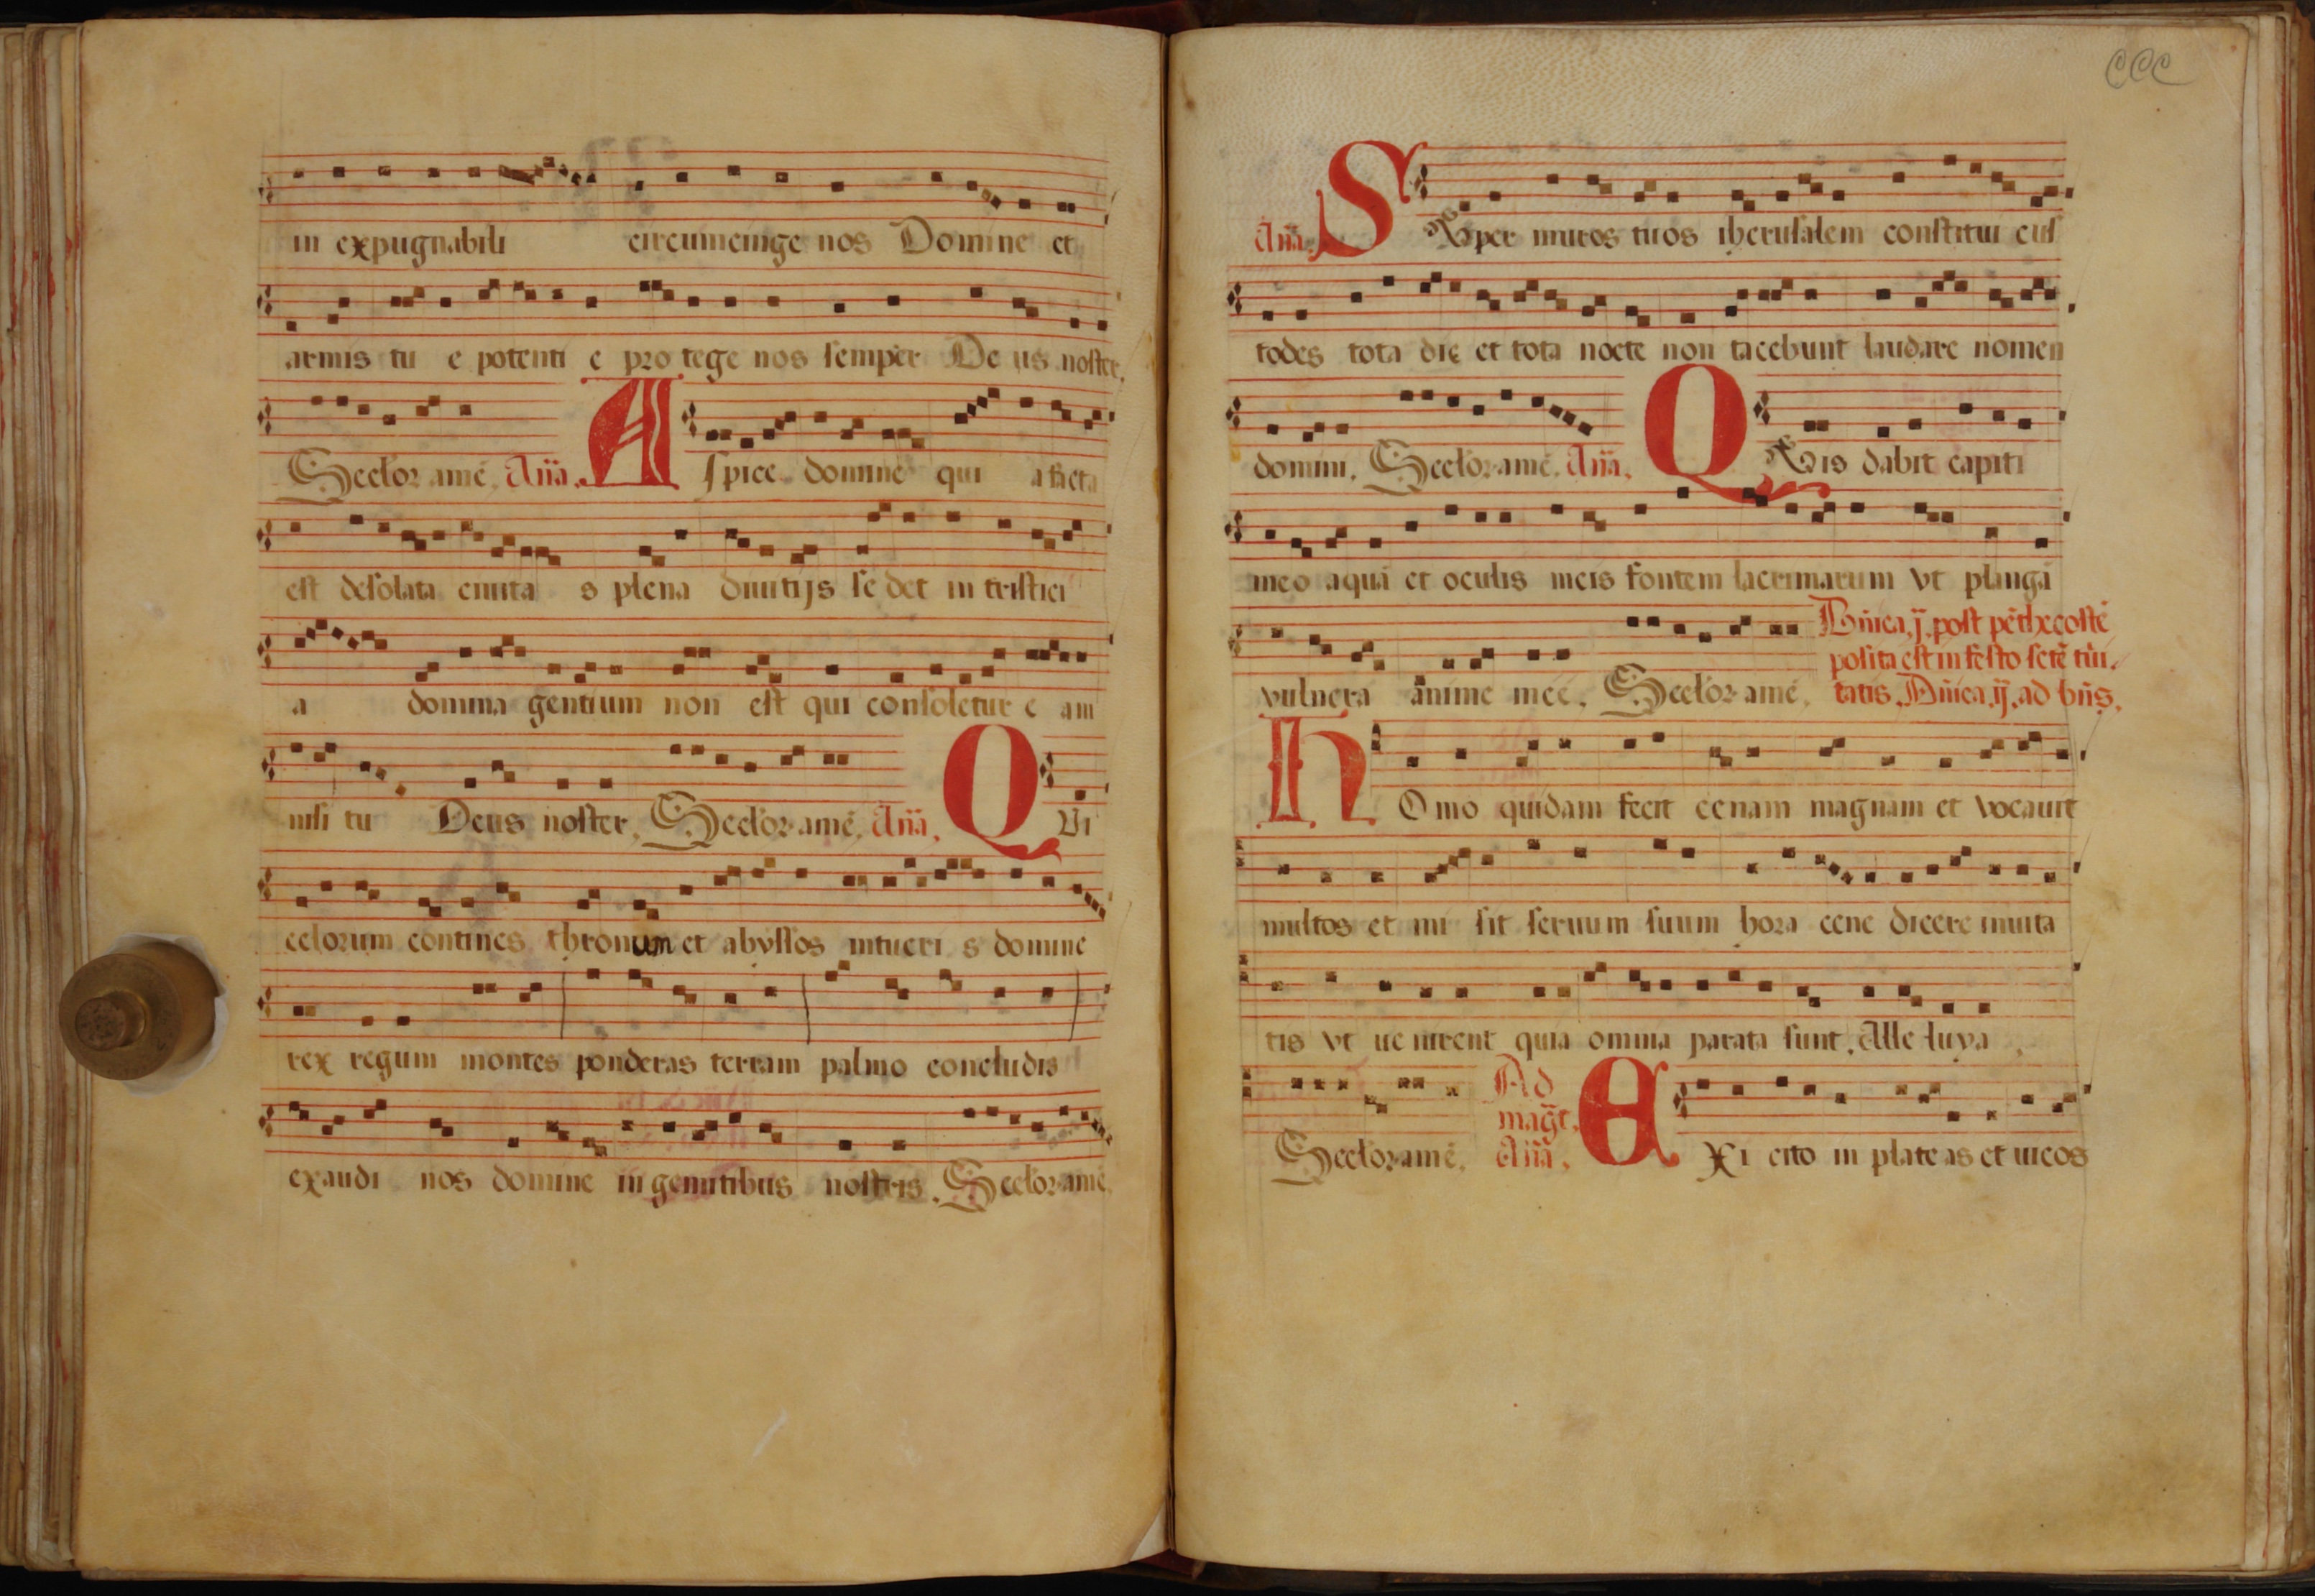 in expugnabili circumcinge nos Domine et
armis tu e potenti e pro tege nos semper De us noster,
Seclor amē, Aña. A
spice domine qui a facta
est desolata ciuita s plena diuitijs se det in tristici
a domina gentium non est qui consoletur e am
nisi tu Deus noster, Seclor amē, Aña, Q
Vi
celorum contines thronum et abyssos intueri s domine
rex regum montes ponderas terram palmo concludis
exaudi nos domine in gemitibus nostris. Seclor amē,
CCC
Aña. S
Vper muros tuos iherusalem constitui cus
todes tota die et tota nocte non tacebunt laudare nomen
domini. Seclor amē. Aña. Q
Vis dabit capiti
meo aquā et oculis meis fontem lacrimarum vt plangā
vulnera anime mee. Seclor amē,
Dñica .ij. post pēthecostē
posita est in festo scte tri-
tatis. Dñica .ij. ad bñs.
H
Omo quidam fecit cenam magnam et vocauit
multos et mi sit seruum suum hora cene dicere inuita
tis vt ue nirent quia omnia parata sunt. Alle luya
Seclor amē. Ad
magt.
Aña. E
Xi cito in plateas et uicos